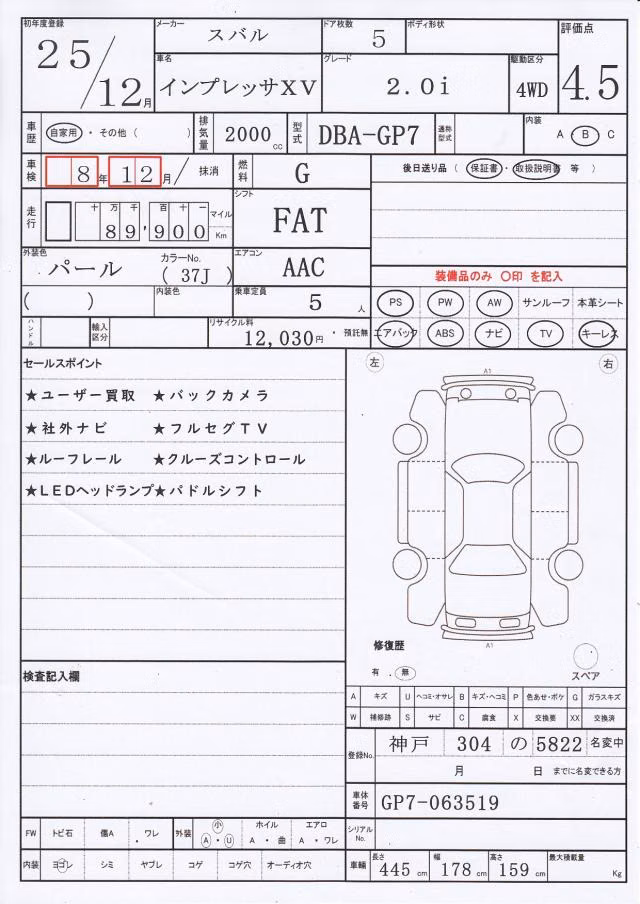 初年度登録 25/12月 メーカー スバル ドア枚数 5 ボディ形状 評価点 4.5
車名 インプレッサXV グレード 2.0i 駆動区分 4WD
車歴 自家用・その他( ) 排気量 2000cc 型式 DBA-GP7 通称型式 内装 A・B C
車検 8年12月/ 抹消 燃料 G 後日送り品 ( 保証書・取扱説明書 等 )
走行 十万千百十一 89,900 マイル Km シフト FAT
外装色 パール カラーNo. ( 37J ) エアコン AAC 装備品のみ 〇印 を記入
( ) 内装色 乗車定員 5人 PS PW AW サンルーフ 本革シート
ハンドル 輸入区分 リサイクル料 12,030円・預託無 エアバック ABS ナビ TV キーレス
セールスポイント 左 右
A1
★ユーザー買取 ★バックカメラ
★社外ナビ ★フルセグTV
★ルーフレール ★クルーズコントロール
★LEDヘッドランプ★パドルシフト
修復歴 A1
有 . 無 スペア
検査記入欄
A キズ U ヘコミ・オサレ B キズ・ヘコミ P 色あせ・ボケ G ガラスキズ
W 補修跡 S サビ C 腐食 X 交換要 XX 交換済
登録No. 神戸 304 の 5822 名変中
月 日 までに名変できる方
車体番号 GP7-063519
FW トビ石 傷A ・ワレ 外装 小 A・U ホイル A・曲 エアロ A・ワレ シリアルNo.
内装 ヨゴレ シミ ヤブレ コゲ コゲ穴 オーディオ穴 車輛 長さ 445cm 幅 178cm 高さ 159cm 最大積載量 Kg